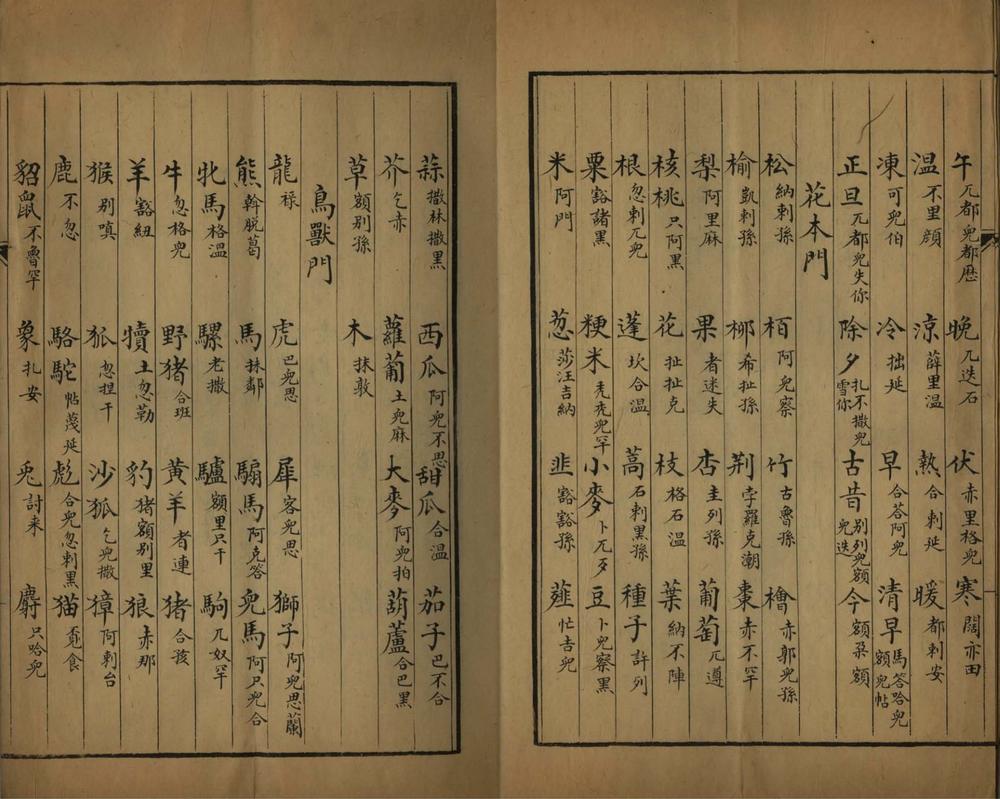 午 兀都兒都歷 晚 兀迭石 伏 赤里格兒 寒 闊亦田
溫 不里顔 涼 薛里溫 熱 合剌延 暖 都剌安
凍 可兒伯 冷 拙延 早 合荅阿兒 清早 馬荅哈兒額兒帖
正旦 兀都兒失你 除夕 扎不撒兒雪你 古昔 别列兒額兒迭 今 額朶額
花本門
松 納剌孫 栢 阿兒察 竹 古魯孫 檜 赤郭兒孫
榆 凱剌孫 柳 希扯孫 荆 孛羅克潮 棗 赤不罕
梨 阿里麻 果 者迷失 杏 圭列孫 葡萄 兀遵
核桃 只阿黑 花 扯扯克 枝 格石溫 葉 納不陣
根 忽剌兀兒 蓬 坎合溫 蒿 石剌黑孫 種子 許列
粟 豁諸黑 粳米 禿禿兒罕 小麥 卜兀歹 豆 卜兒察黑
米 阿門 葱 莎汪吉納 韭 豁豁孫 薤 忙吉兒
蒜 撒林撒黑 西瓜 阿兒不思 甜瓜 合溫 茄子 巴不合
芥 乞赤 蘿蔔 土兒麻 大麥 阿兒拍 葫蘆 合巴黑
草 額别孫 木 抹敦
鳥獸門
龍 祿 虎 巴兒思 犀 客兒思 獅子 阿兒思蘭
熊 斡脱葛 馬 抹鄰 騸馬 阿克答 兒馬 阿只兒合
牝馬 格溫 騾 老撒 驢 額里只干 駒 兀奴罕
牛 忽格兒 野猪 合班 黄羊 者連 猪 合孩
羊 豁紐 犢 土忽勒 豹 猪額别里 狼 赤那
猴 别嗔 狐 忽捏干 沙狐 乞兒撒 獐 阿剌台
鹿 不忽 駱駝 帖蔑延 彪 合兒忽剌黑 猫 覔食
貂鼠 不魯罕 象 扎安 兎 討来 麝 只哈兒